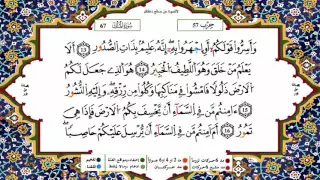 67
57
وَأَسِرُّوا۟ قَوْلَكُمْ أَوِ ٱجْهَرُوا۟ بِهِۦٓ إِنَّهُۥ عَلِيمٌۢ بِذَاتِ ٱلصُّدُورِ ١٣ أَلَا
يَعْلَمُ مَنْ خَلَقَ وَهُوَ ٱللَّطِيفُ ٱلْخَبِيرُ ١٤ هُوَ ٱلَّذِى جَعَلَ لَكُمُ
ٱلْأَرْضَ ذَلُولًا فَٱمْشُوا۟ فِى مَنَاكِبِهَا وَكُلُوا۟ مِن رِّزْقِهِۦ وَإِلَيْهِ ٱلنُّشُورُ
١٥ ءَأَمِنتُم مَّن فِى ٱلسَّمَآءِ أَن يَخْسِفَ بِكُمُ ٱلْأَرْضَ فَإِذَا هِىَ
تَمُورُ ١٦ أَمْ أَمِنتُم مَّن فِى ٱلسَّمَآءِ أَن يُرْسِلَ عَلَيْكُمْ حَاصِبًا